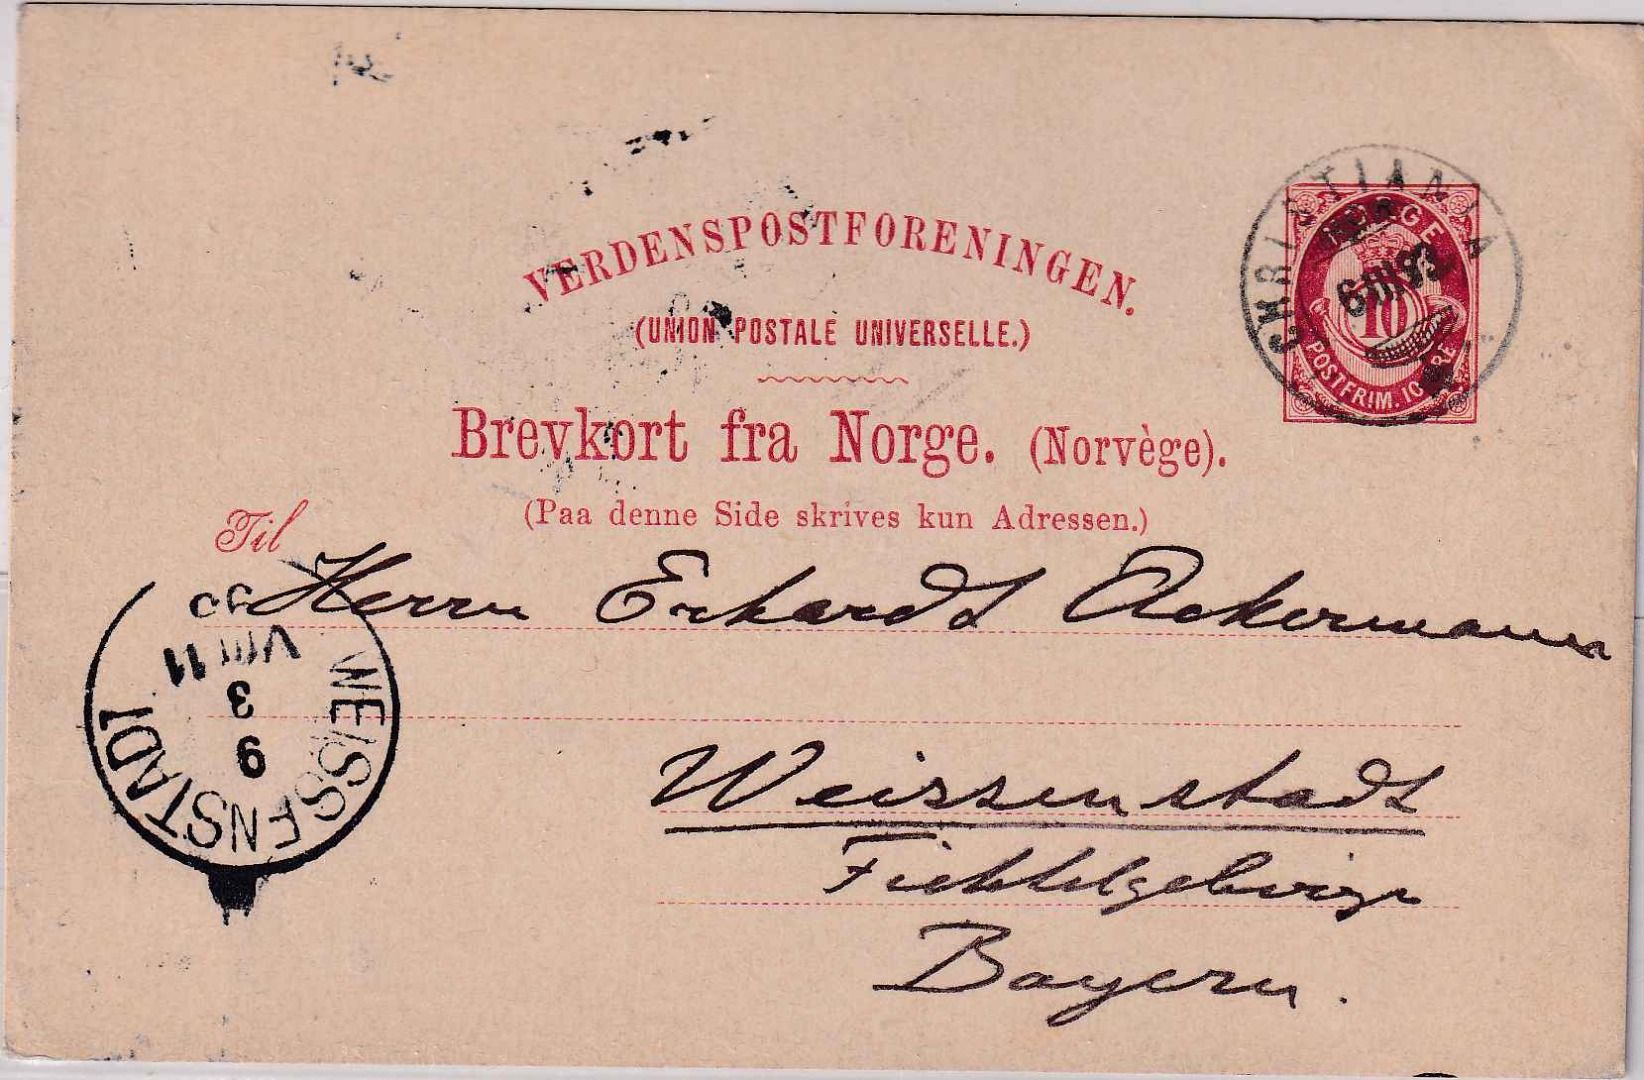 VERDENSPOSTFORENINGEN.
(UNION POSTALE UNIVERSELLE.)
Brevkort fra Norge. (Norvège).
(Paa denne Side skrives kun Adressen.)
CHRISTIANIA
6 III 9
NORGE
10
POSTFRIM. 10 ØRE
Til
Herrn Erhardt Ackermann
Weissenstadt
Fichtelgebirge
Bayern.
WEISSENSTADT
9
3
VIII 11
90